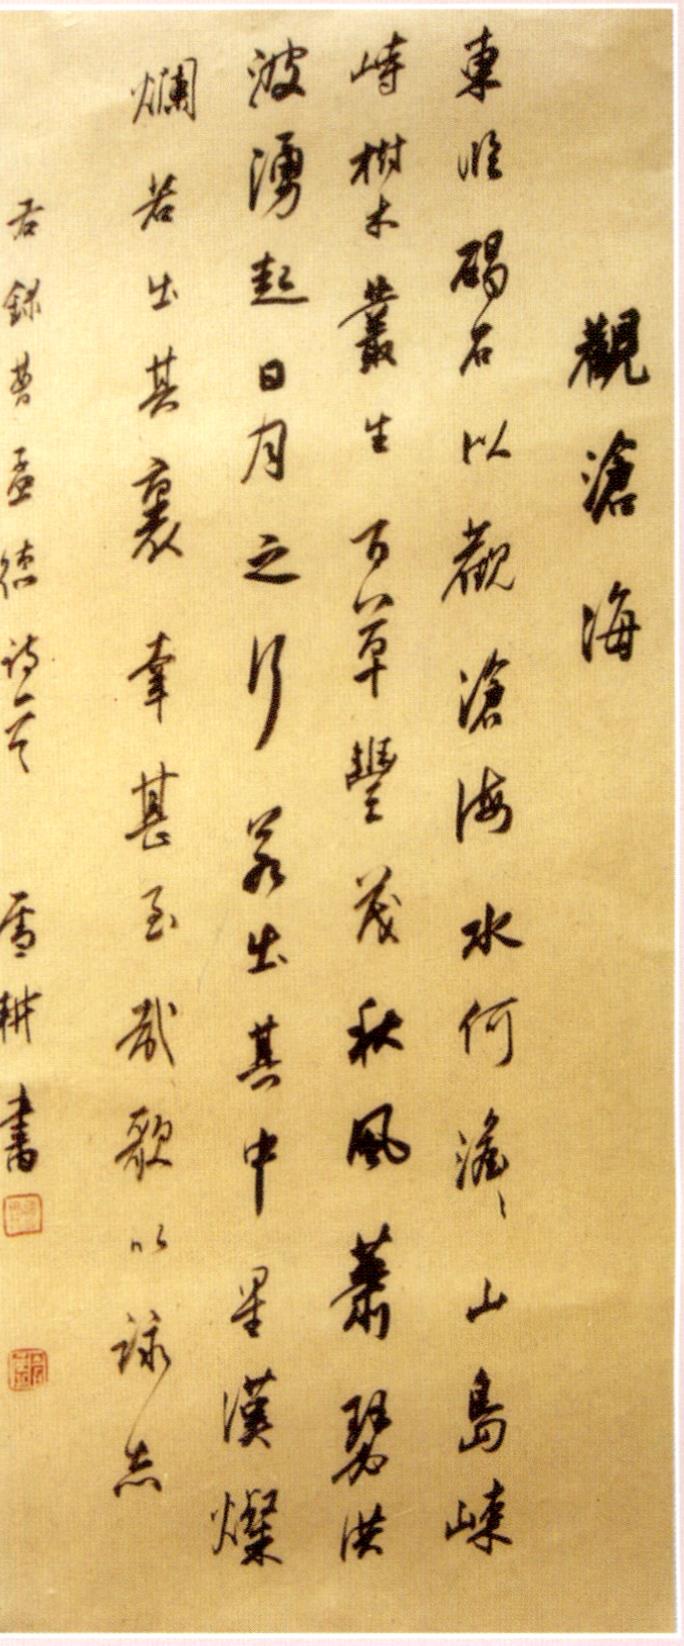 觀滄海
東臨碣石以觀滄海水何澹〻山島竦
峙樹木叢生百草豐茂秋風蕭瑟洪
波湧起日月之行若出其中星漢燦
爛若出其裏幸甚至哉歌以詠志
右錄曹孟德詩一首 耕書